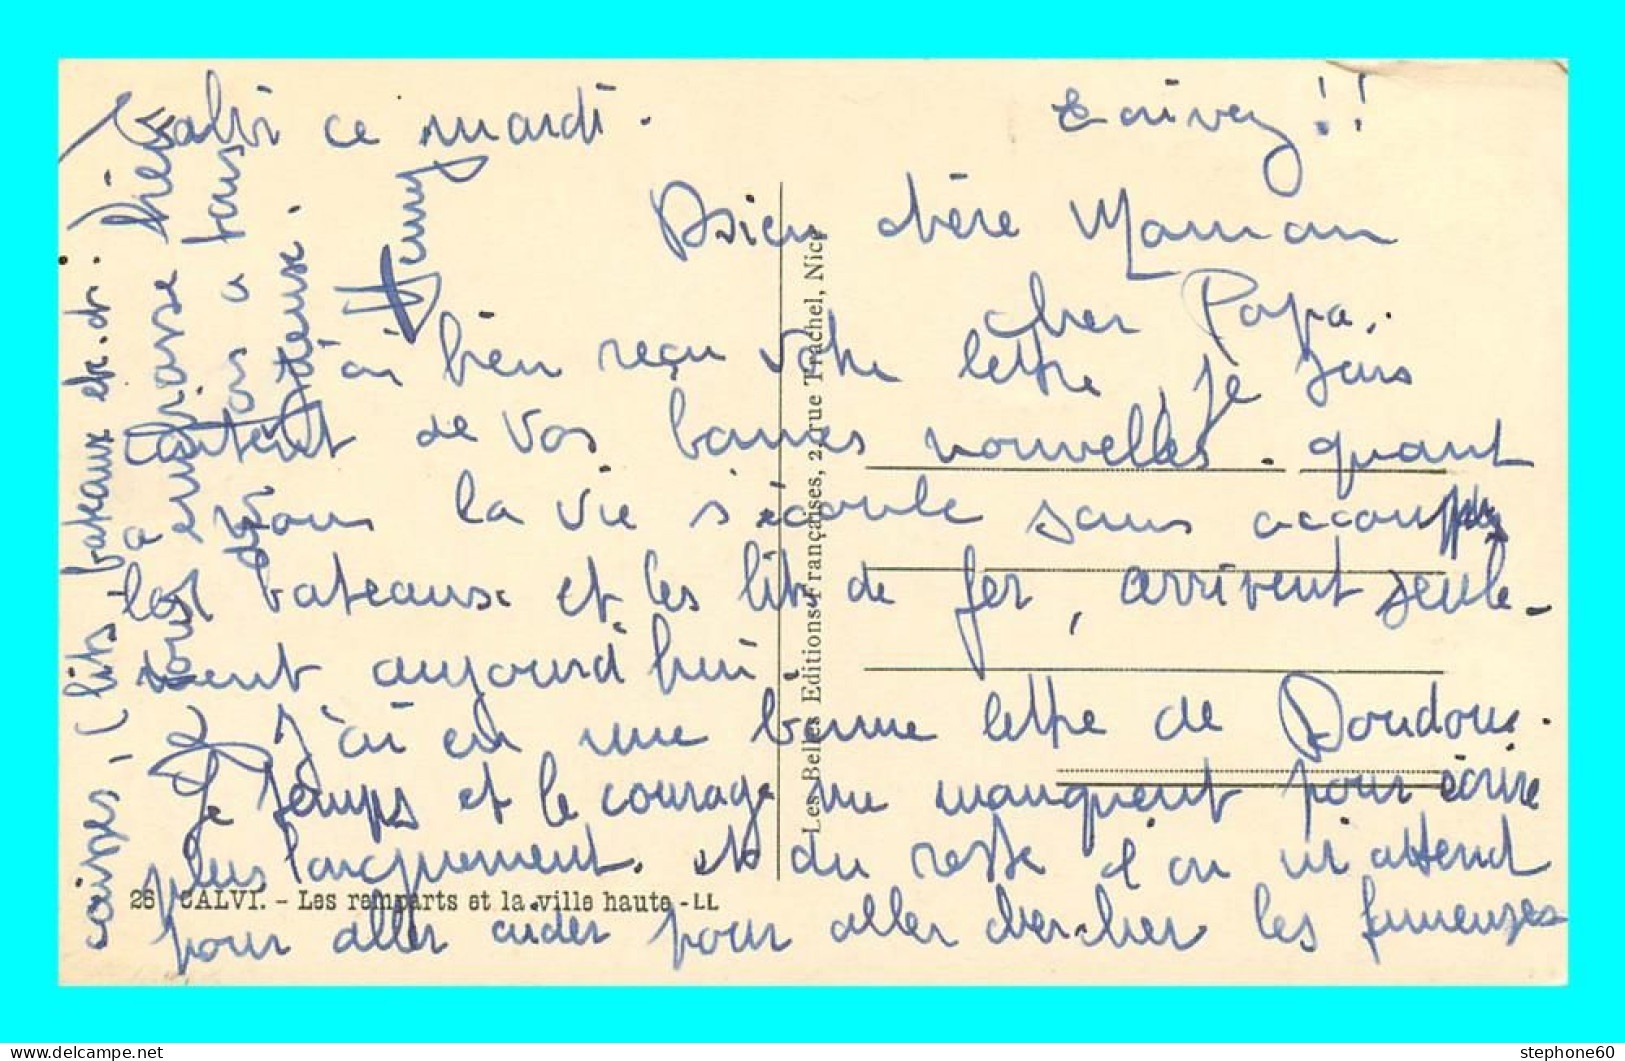 Calvi ce mardi.
Ecrivez !!
Bien chère Maman
cher Papa.
J'ai bien reçu votre lettre, je suis
content de vos bonnes nouvelles. quant
à nous la vie s'écoule sans accroc
les bateaux et les lits de fer, arrivent seule-
ment aujourd'hui
J'ai eu une bonne lettre de Doudou.
Le temps et le courage me manquent pour écrire
plus longuement. et du reste l'on m'attend
pour aller aider pour aller chercher les fameuses
caisses, (lits, bateaux etc. etc.
Je vous embrasse bien
Henry
26 CALVI. - Les remparts et la ville haute - LL
Les Belles Editions Françaises, 2, rue Trachel, Nice
stephone60